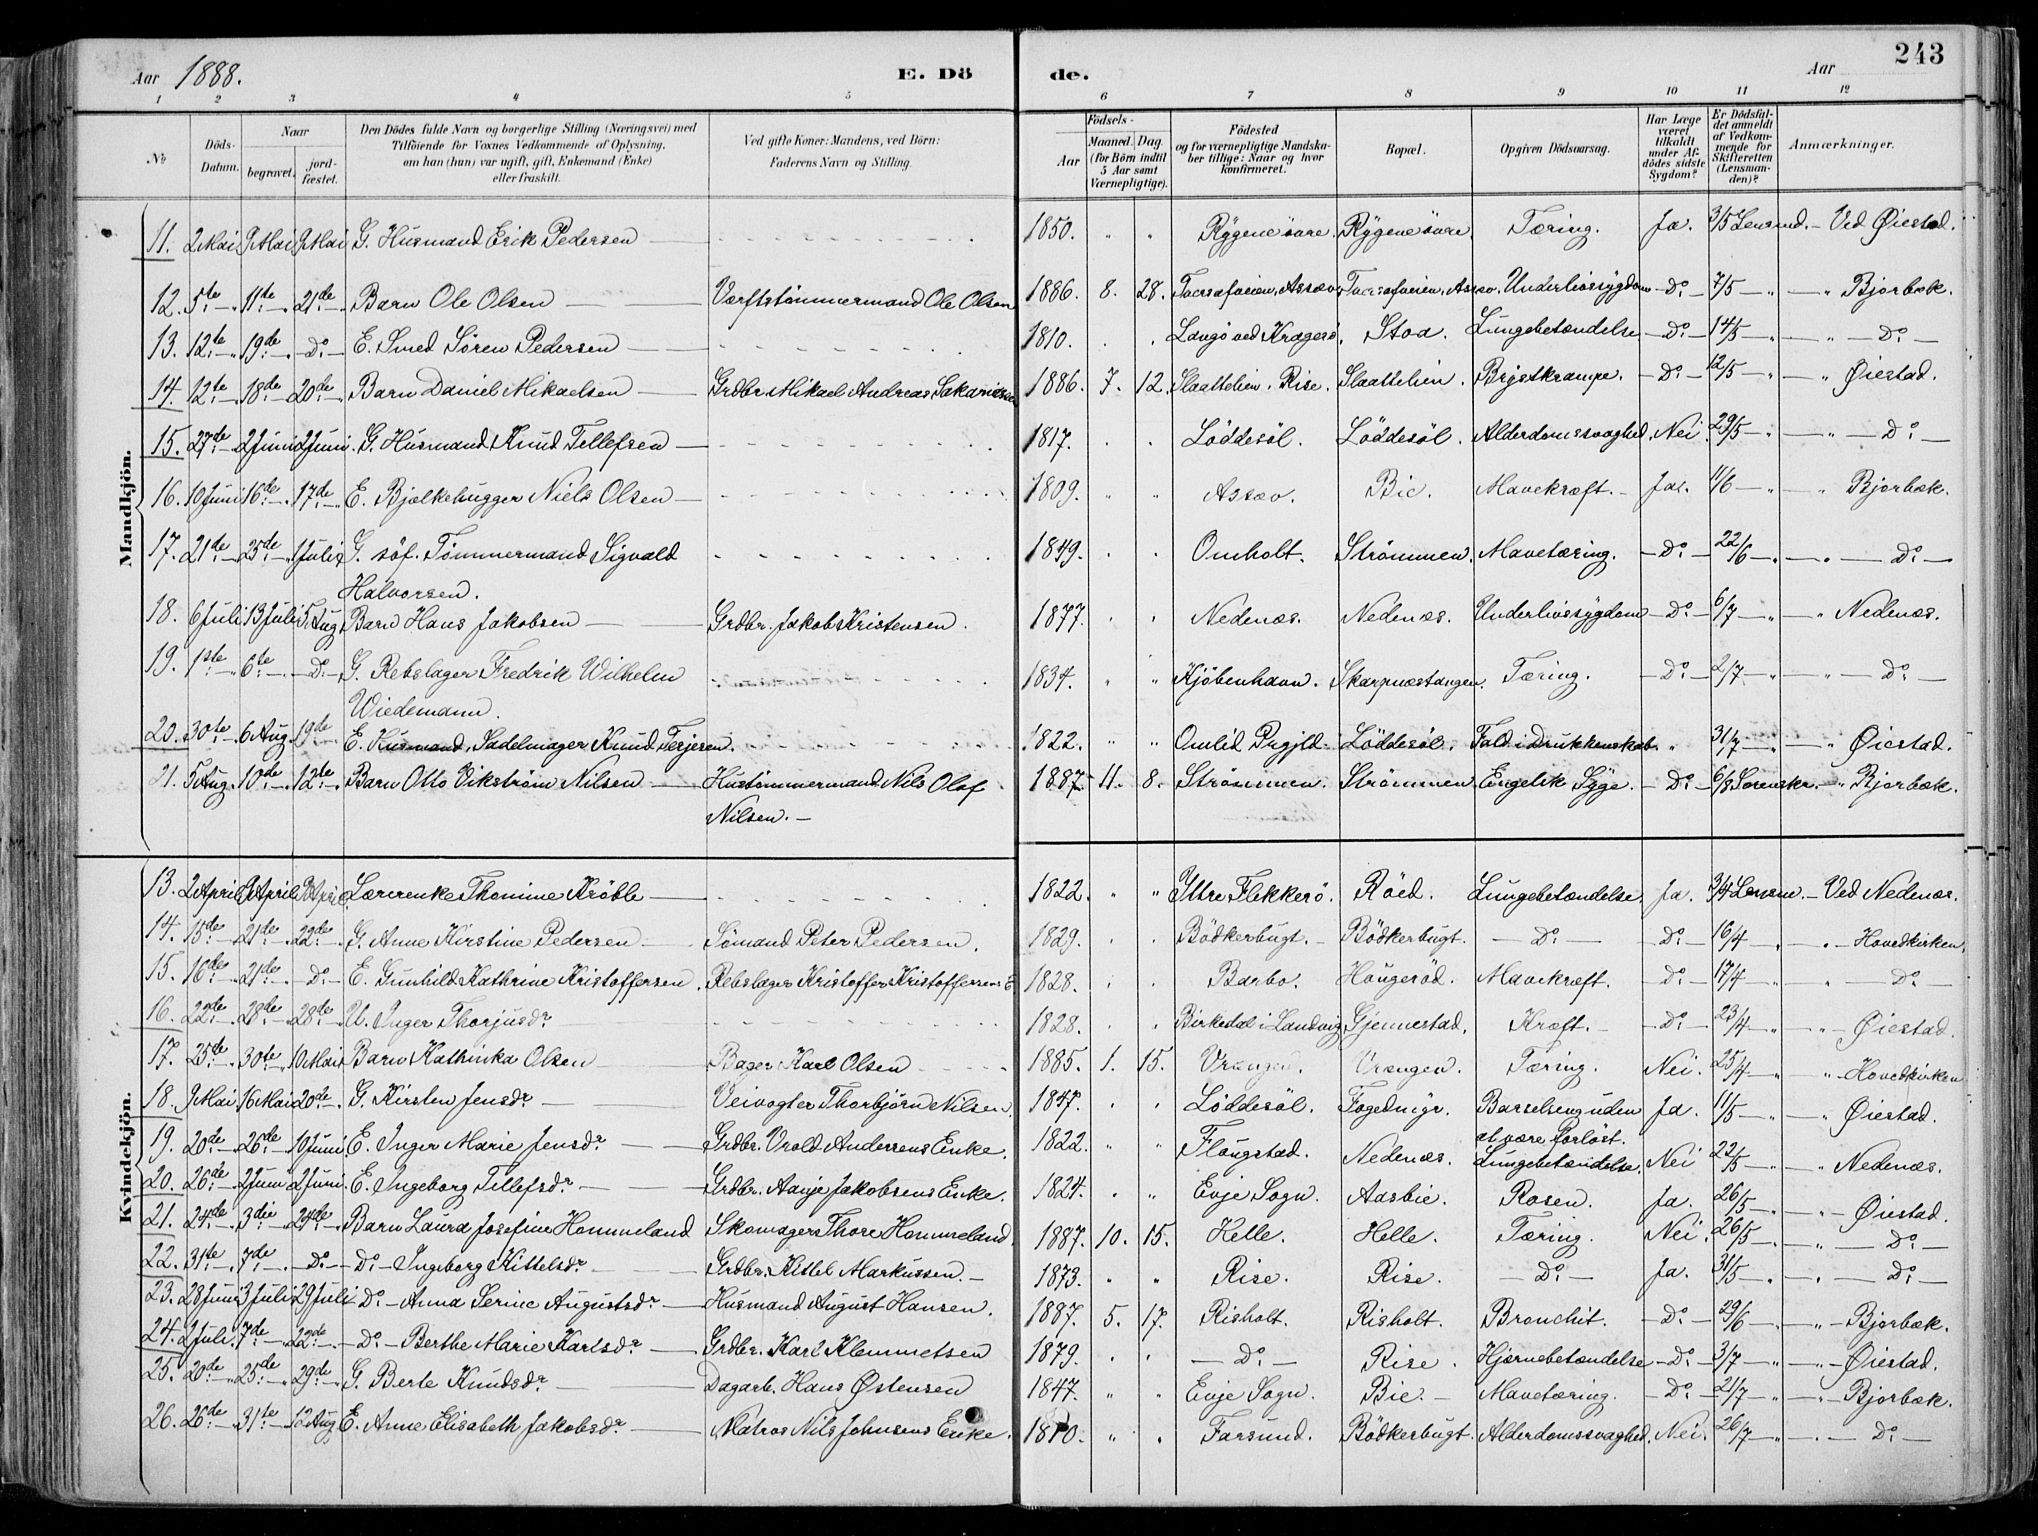 Aar 1888.
E. Dö
de.
Aar
243
1 2 3 4 5 6 7 8 9 10 11 12
№
Döds-Datum.
Naar
begravet.
jord-fæstet.
Den Dödes fulde Navn og borgerlige Stilling (Næringsvei) med
Tilföiende for Voxnes Vedkommende af Oplysning,
om han (hun) var ugift, gift, Enkemand (Enke)
eller fraskilt.
Ved gifte Koner: Mandens, ved Börn:
Faderens Navn og Stilling.
Födsels-
Aar
Maaned. Dag.
(for Börn indtil
5 Aar samt
Værnepligtige).
Födested
og for værnepligtige Mandska-
ber tillige: Naar og hvor
konfirmeret.
Bopæl.
Opgiven Dödsaarsag.
Har Læge
været
tilkaldt
under Af-
dödes sidste
Sygdom?
Er Dödsfal-
det anmeldt
af Vedkom-
mende for
Skifteretten
(Lensman-
den)?
Anmærkninger.
Mandkjön.
11. 2 Mai 9 Mai 9 Mai G. Husmand Erik Pedersen — 1850. " " Rygene øvre. Rygene øvre. Tæring. Ja. 3/5 Lensmd. - Ved Øiestad.
12. 5te 11te 21de Barn Ole Olsen — Værftstømmermand Ole Olsen 1886. 8. 28. Assæv. Assæv. Underlivssygdom Do 7/5 — " — " Bjorbæk.
13. 12te 19de Do E. Smed Søren Pedersen — 1810. " " Langø ved Kragerø. Stoa. Lungebetændelse Do 14/5 — " — " Do
14. 12te 18de 20de Barn Daniel Mikaelsen — Grdbr. Mikael Andreas Sakariasen 1886. 7. 12. Slaattelien. Rise. Slaattelien. Brystkrampe. Do 12/5 — " — " Øiestad.
15. 27de 2 Juni 2 Juni. G. Husmand Knud Tellefsen — 1817. " " Løddesøl. Løddesøl. Alderdomssvaghed. Nei. 29/5 — " — " Do
16. 10 Juni 16de 17de E. Bjælkehugger Niels Olsen — 1809. " " Assæv. Bie. Mavekræft. - Ja. 11/6 — " — " Bjorbæk.
17. 21de 25de 1 Juli G. søf. Tømmermand Sigvald
Halvorsen. 1849. " " Omholt. Strømmen. Mavetæring. Do 22/6 — " — " Do
18. 6 Juli 13 Juli 5 Aug. Barn Hans Jakobsen — Grdbr. Jakob Kristensen. 1877. " " Nedenæs. Nedenæs. Underlivssygdom Do 6/7 — " — " Nedenæs.
19. 1ste 6te Do G. Rebslager Fredrik Wilhelm
Wiedemann. 1834. " " Kjøbenhavn. Skarpnæstangen. Tæring. Do 2/7 — " — " Do
20. 30te 6 Aug. 19de E. Husmand, Sadelmager Knud Terjesen. 1822. " " Omlid Prgjld. Løddesøl. Fald i Drukkenskab. " 31/7 — " — " Øiestad.
21. 5 Aug. 10de 12te Barn Otto Vikstrøm Nilsen — Hustømmermand Nils Olaf
Nilsen. — 1887. 11. 8. Strømmen. Strømmen. Engelsk Syge. Do 6/8 Sorenskr. — " Bjorbæk.
Kvindekjön.
13. 2 April 9 April 9 April Lærerenke Thomine Krøble — 1822. " " Ytre Flekkerø. Røed. Lungebetændelse. Ja. 3/4 Lensm. - Ved Nedenæs.
14. 15de 21de 22de G. Anne Kirstine Pedersen — Sømand Peter Pedersen. 1829. " " Bödkerbugt. - Bödkerbugt. Do Do 16/4 " " - Hovedkirken.
15. 16de 21de Do E. Gunhild Kathrine Kristoffersen. Rebslager Kristoffer Kristoffersens E 1828. " " Barbo. Haugerød. Mavekræft. Do 17/4 — " — " Do
16. 22de 28de 28de U. Inger Thorjusdr — 1828. " " Birkedal i Landvig Gjennestad. Kræft. - Do 23/4 — " — " Øiestad.
17. 25de 30te 10 Mai Barn Kathinka Olsen — Bager Karl Olsen 1885. 1. 15. Vrængen. Vrængen. Tæring. Nei. 25/4 — " — " Hovedkirken
18. 9 Mai 16 Mai 20de G. Kirsten Jensdr — Veivogter Thorbjørn Nilsen. 1847. " " Løddesøl. Fogedmyr. Barselseng uden
at være forløst. Ja. 11/5 — " — " Øiestad.
19. 20de 26de 10 Juni E. Inger Marie Jensdr — Grdbr. Vrold Andersens Enke. 1822. " " Flougstad. Nedenæs. Lungebetændelse. Nei 22/5 — " — " Nedenæs.
20. 26de 2 Juni 2 Juni. E. Ingeborg Tellefsdr — Grdbr. Aanje Jakobsens Enke. 1824. " " Evje Sogn. Aasbie. Rosen. Ja. 26/5 — " — " Øiestad.
21. 24de 3die 24de Barn Laura Josefine Hommeland Skomager Thore Hommeland. 1887. 10. 15. Helle. Helle. Tæring. Nei. 26/5 — " — " Do
22. 31te 7de Do Do Ingeborg Kittelsdr — Grdbr. Kittel Markussen. — 1873. " " Rise. Rise. Do Ja. 31/5 — " — " Do
23. 28 Juni 3 Juli 29 Juli Do Anna Serine Augustsdr — Husmand August Hansen. 1887. 5. 17. Risholt. Risholt. Bronchit. Do 29/6 — " — " Bjorbæk.
24. 2 Juli. 7de 22de Do Berthe Marie Karlsdr — Grdbr. Karl Klemmetsen 1879. " " Do Rise. Hjernebetændelse Do 3/7 — " — " Øiestad.
25. 20de 25de 29de G. Berte Knudsdr — Dagarb. Hans Østensen 1847. " " Evje Sogn. Bie. - Mavetæring. Do 21/7 — " — " Bjorbæk.
26. 26de 31te 12 Aug. E. Anne Elisabeth Jakobsdr — Matros Nils Johnsens Enke. 1810. " " Farsund. Bödkerbugt. Alderdomssvaghed. Nei. 26/7 — " — " Do